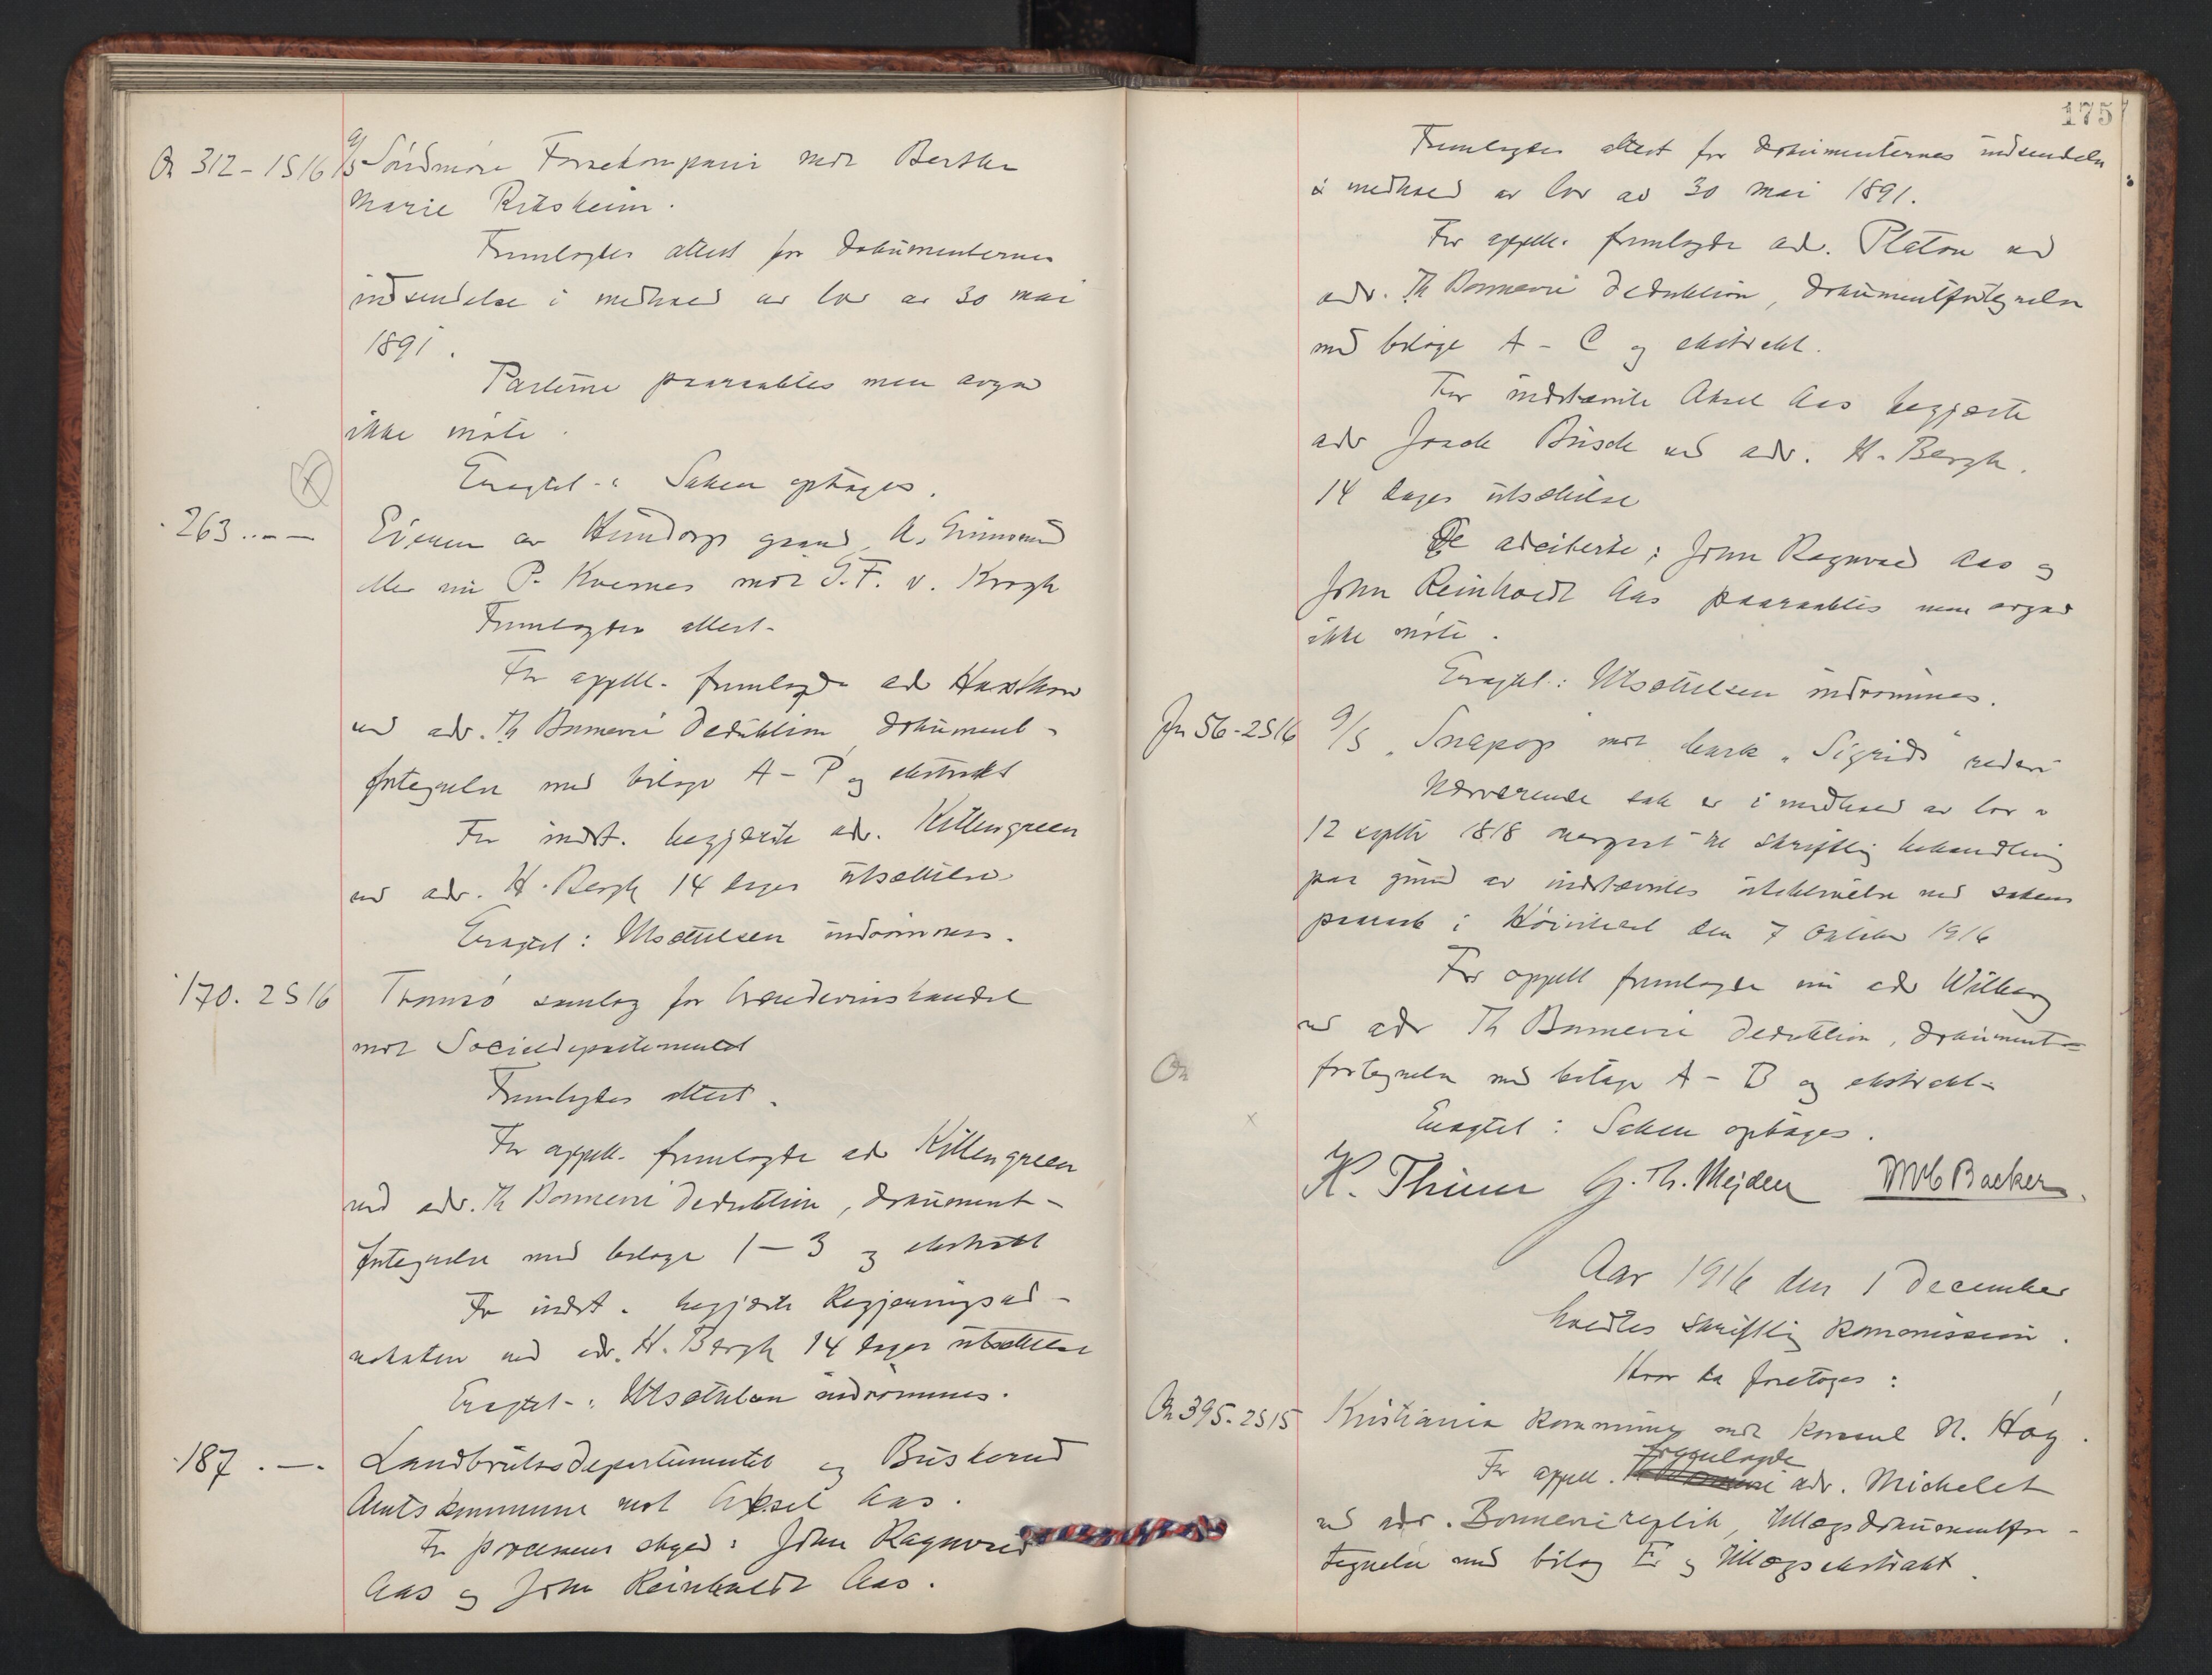 On 312 - 1S16 A/S Söndmöre Fornekompani mot Berthe
Marie Ritsheim.
Fremlagdes attest for dokumenternes
indsendelse i medhold av lov av 30 mai
1891.
Parterne paaraabtes men avgav
ikke möte.
Eragtet: Saken optages.
263 " - — Eieren av Hundorp gaard A.
eller nu P. Kvernes mot G. F. v. Krogh
Fremlagdes attest.
For appell. fremlagde adv Haxthow
ved adv. Th Bonnevi deduktion dokument-
fortegnelse med bilage A - P og ekstrakt
For indst. begjærte adv. Killengreen
ved adv. H. Bergh 14 dages utsættelse.
Eragtet: Utsættelsen indrömmes.
170. 2S16 Tromsö samlag for brændevinshandel
mot Socialdepartementet
Fremlagdes attest.
For appell. fremlagde adv Killengreen
ved adv. Th Bonnevi deduktion, dokument-
fortegnelse med bilage 1 - 3 og ekstrakt
For indst. begjærte Regjeringsad-
vokaten ved adv. H. Bergh 14 dages utsættelse
Eragtet: Utsættelsen indrömmes.
187 . —. Landbruksdepartementet og Buskerud
Amtskommune mot Aksel Aas.
For processens skyld: John Ragnvald
Aas og John Reinholdt Aas.
175
Fremlagdes attest for dokumenternes indsendelse
i medhold av lov av 30 mai 1891.
For appell. fremlagde adv. Platou ved
adv. Th Bonnevi deduktion, dokumentfortegnelse
med bilage A - C og ekstrakt.
For indstevnte Aksel Aas begjærte
adv Busch ved adv. H. Bergh.
14 dages utsættelse
De adciterte: John Ragnvald Aas og
John Reinholdt Aas paaraabtes men avgav
ikke möte.
Eragtet: Utsættelsen indrömmes.
56-2S16 D/S "Snapop" mot bark "Sigrids" rederi
Nærværende sak er i medhold av lov a
12 septbr 1818 overgaat til skriftlig behandling
paa grund av indstevntes uteblivelse ved sakens
paaraab i Höiesteret den 7 Oktober 1916
For appell fremlagde nu adv Wilberg
ved adv Th Bonnevi deduktion, dokument-
fortegnelse med bilage A - B og ekstrakt.
On
Eragtet: Saken optages.
K. Thinn G. Th. Mejdell Backer.
Aar 1916 den 1 december
holdtes skriftlig kommission.
Hvor da foretoges:
On 395. 2S15 Kristiania kommune mot konsul N. Höy.
fremlagde
For appell. adv. Michelet
ved adv. Bonnevi replik, tillægsdokumentfor-
tegnelse med bilag E og tillægsekstrakt.